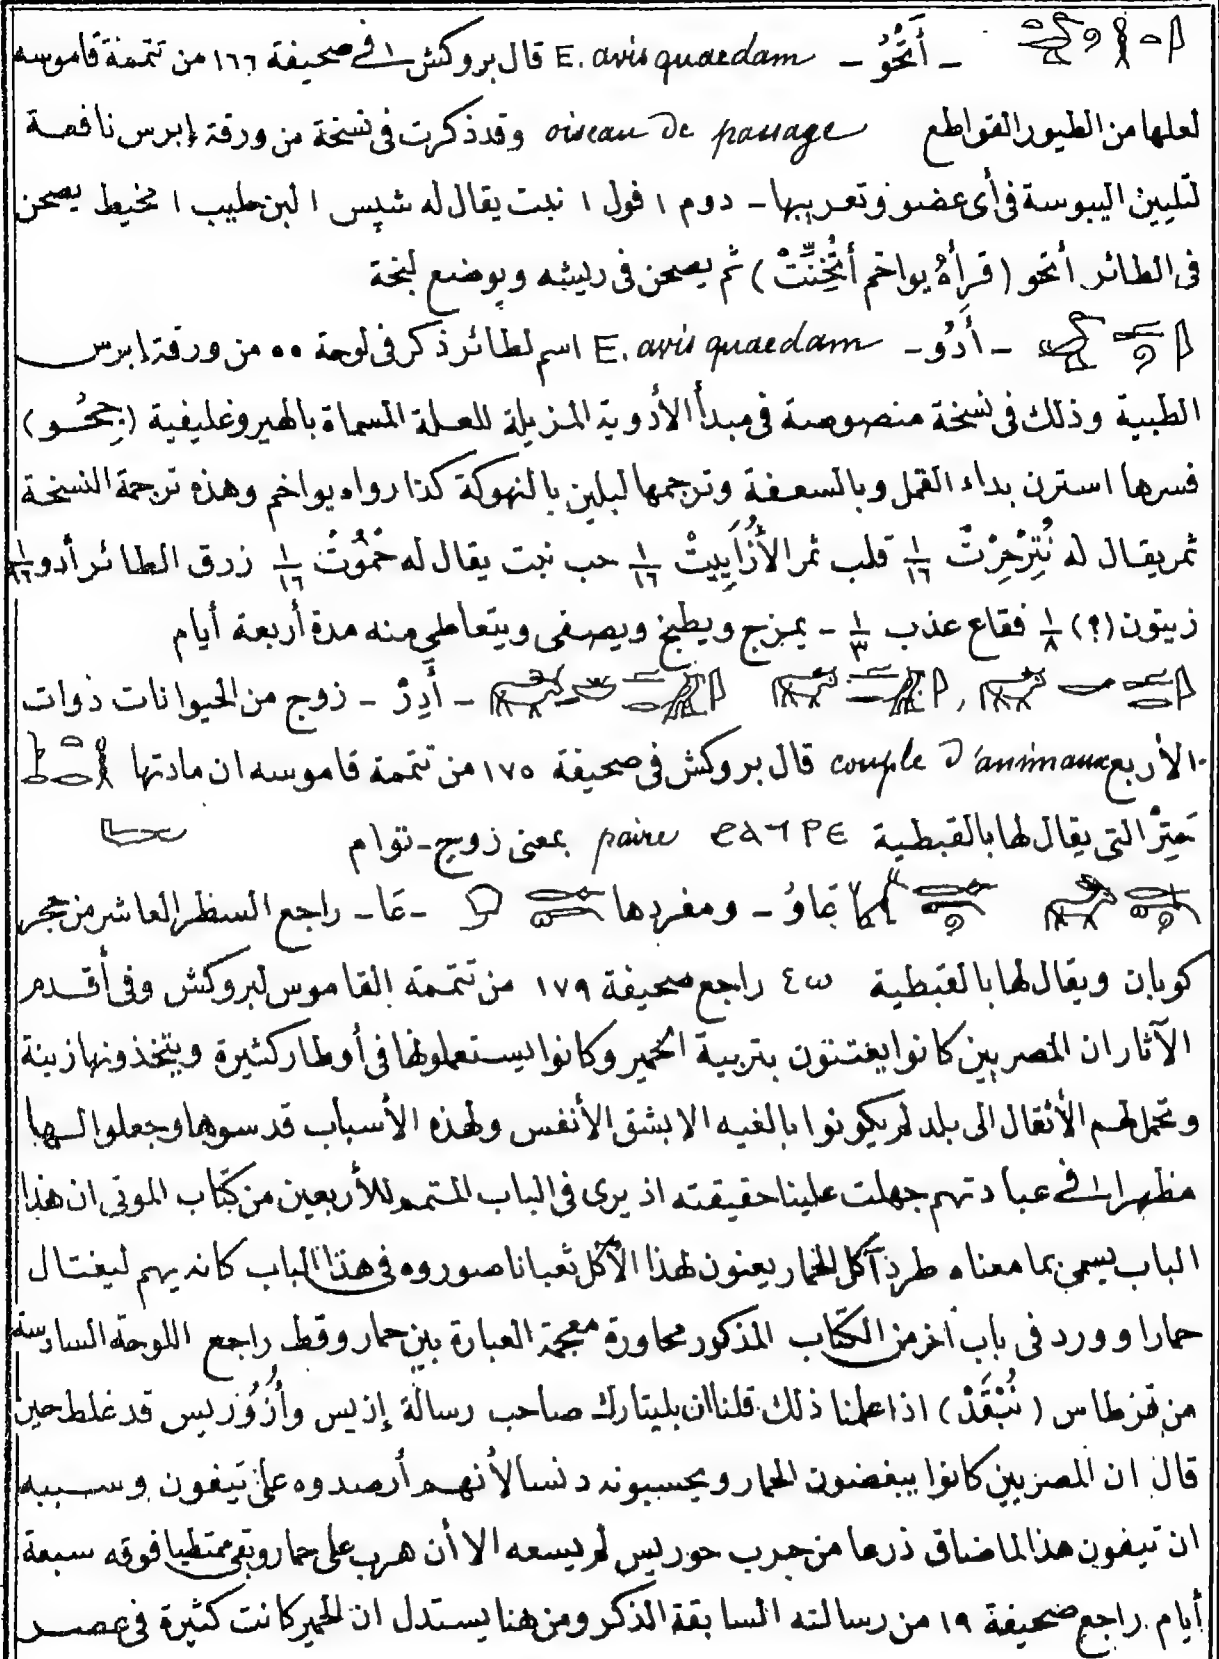 - أَتْحُو - E. avis quaedam قال بروكش فى صحيفة ١٦٦ من تتمة قاموسه
لعلها من الطيور القواطع oiseau de passage وقد ذكرت فى نسخة من ورقة إبرس نافعة
لتليين اليبوسة فى أى عضو وتعريبها - دوم ١ فول ١ نبت يقال له شپس ١ لبن حليب ١ مخيط يصحن
فى الطائر أتحو (قرأهُ يواخم أتْخِنِّتْ) ثم يصحن فى ريشه ويوضع لبخة
- أَدُو - E. avis quaedam اسم لطائر ذكر فى لوحة ٥٥ من ورقة إبرس
الطبية وذلك فى نسخة منصوصة فى مبدأ الأدوية المزيلة للعلة المسماة بالهيروغليفية (جِحُو)
فسرها استرن بداء القمل وبالسعفة وترجمها لبلين بالنهوكة كذا رواه يواخم وهذه ترجمة النسخة
ثمر يقال له نُتِرْحِرْتْ ١/١٦ قلب ثمر الأُزَايِيتْ ١/١٦ حب نبت يقال له خَمُوتْ ١/١٦ زرق الطائر أدو ١/١٦
زيتون (؟) ١/٨ فقاع عذب ١/٣ - يمزج ويطبخ ويصفى ويتعاطى منه مدة أربعة أيام
, - أَدِرْ - زوج من الحيوانات ذوات
الأربع couple d'animaux قال بروكش فى صحيفة ١٧٥ من تتمة قاموسه ان مادتها
حَتِرْ التى يقال لها بالقبطية ϩⲁⲧⲣⲉ paire بمعنى زوج - توام
عَاوُ - ومفردها - عَا - راجع السطر العاشر من حجر
كوبان ويقال لها بالقبطية ⲉⲱ راجع صحيفة ١٧٩ من تتمة القاموس لبروكش وفى أقدم
الآثار ان المصريين كانوا يعتنون بتربية الحمير وكانوا يستعملونها فى أوطار كثيرة ويتخذونها زينة
وتحمل لهم الأثقال الى بلد لم يكونوا بالغيه الا بشق الأنفس ولهذه الأسباب قدسوها وجعلوا لها
مظهرا فى عبادتهم جهلت علينا حقيقته اذ يرى فى الباب المتمم للأربعين من كتاب الموتى ان هذا
الباب يسمى بما معناه طرد آكل الحمار يعنون لهذا الآكل ثعبانا صوروه فى هذا الباب كانه يهم ليغتال
حمارا وورد فى باب آخر من الكتاب المذكور محاورة معجمة العبارة بين حمار وقط راجع اللوحة السادسة
من قرطاس (نُبْقَدْ) اذا علمنا ذلك قلنا ان بليتارك صاحب رسالة إزيس وأُزُوريس قد غلط حين
قال ان المصريين كانوا يبغضون الحمار ويحسبونه دنسا لأنهم أرصدوه على تيفون وسببه
ان تيفون هذا لما ضاق ذرعا من حرب حوريس لم يسعه الا أن هرب على حمار وبقى ممتطيا فوقه سبعة
أيام راجع صحيفة ١٩ من رسالته السابقة الذكر ومن هنا يستدل ان الحمير كانت كثيرة فى عصر